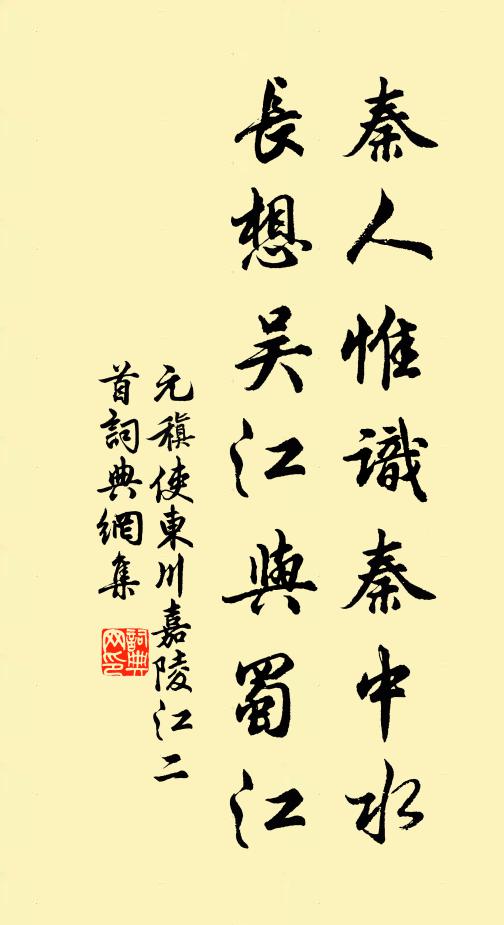 秦人惟識秦中水
長想吳江與蜀江
元稹使東川嘉陵江二
首詞典網集
詞典
网印